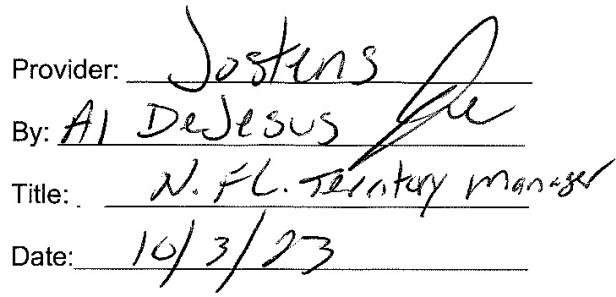 Provider: Jostens
By: Al DeJesus
Title: N. FL. Territory Manager
Date: 10/3/23